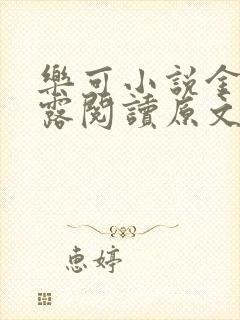 樂可小說金
露閱讀原文
惠婷